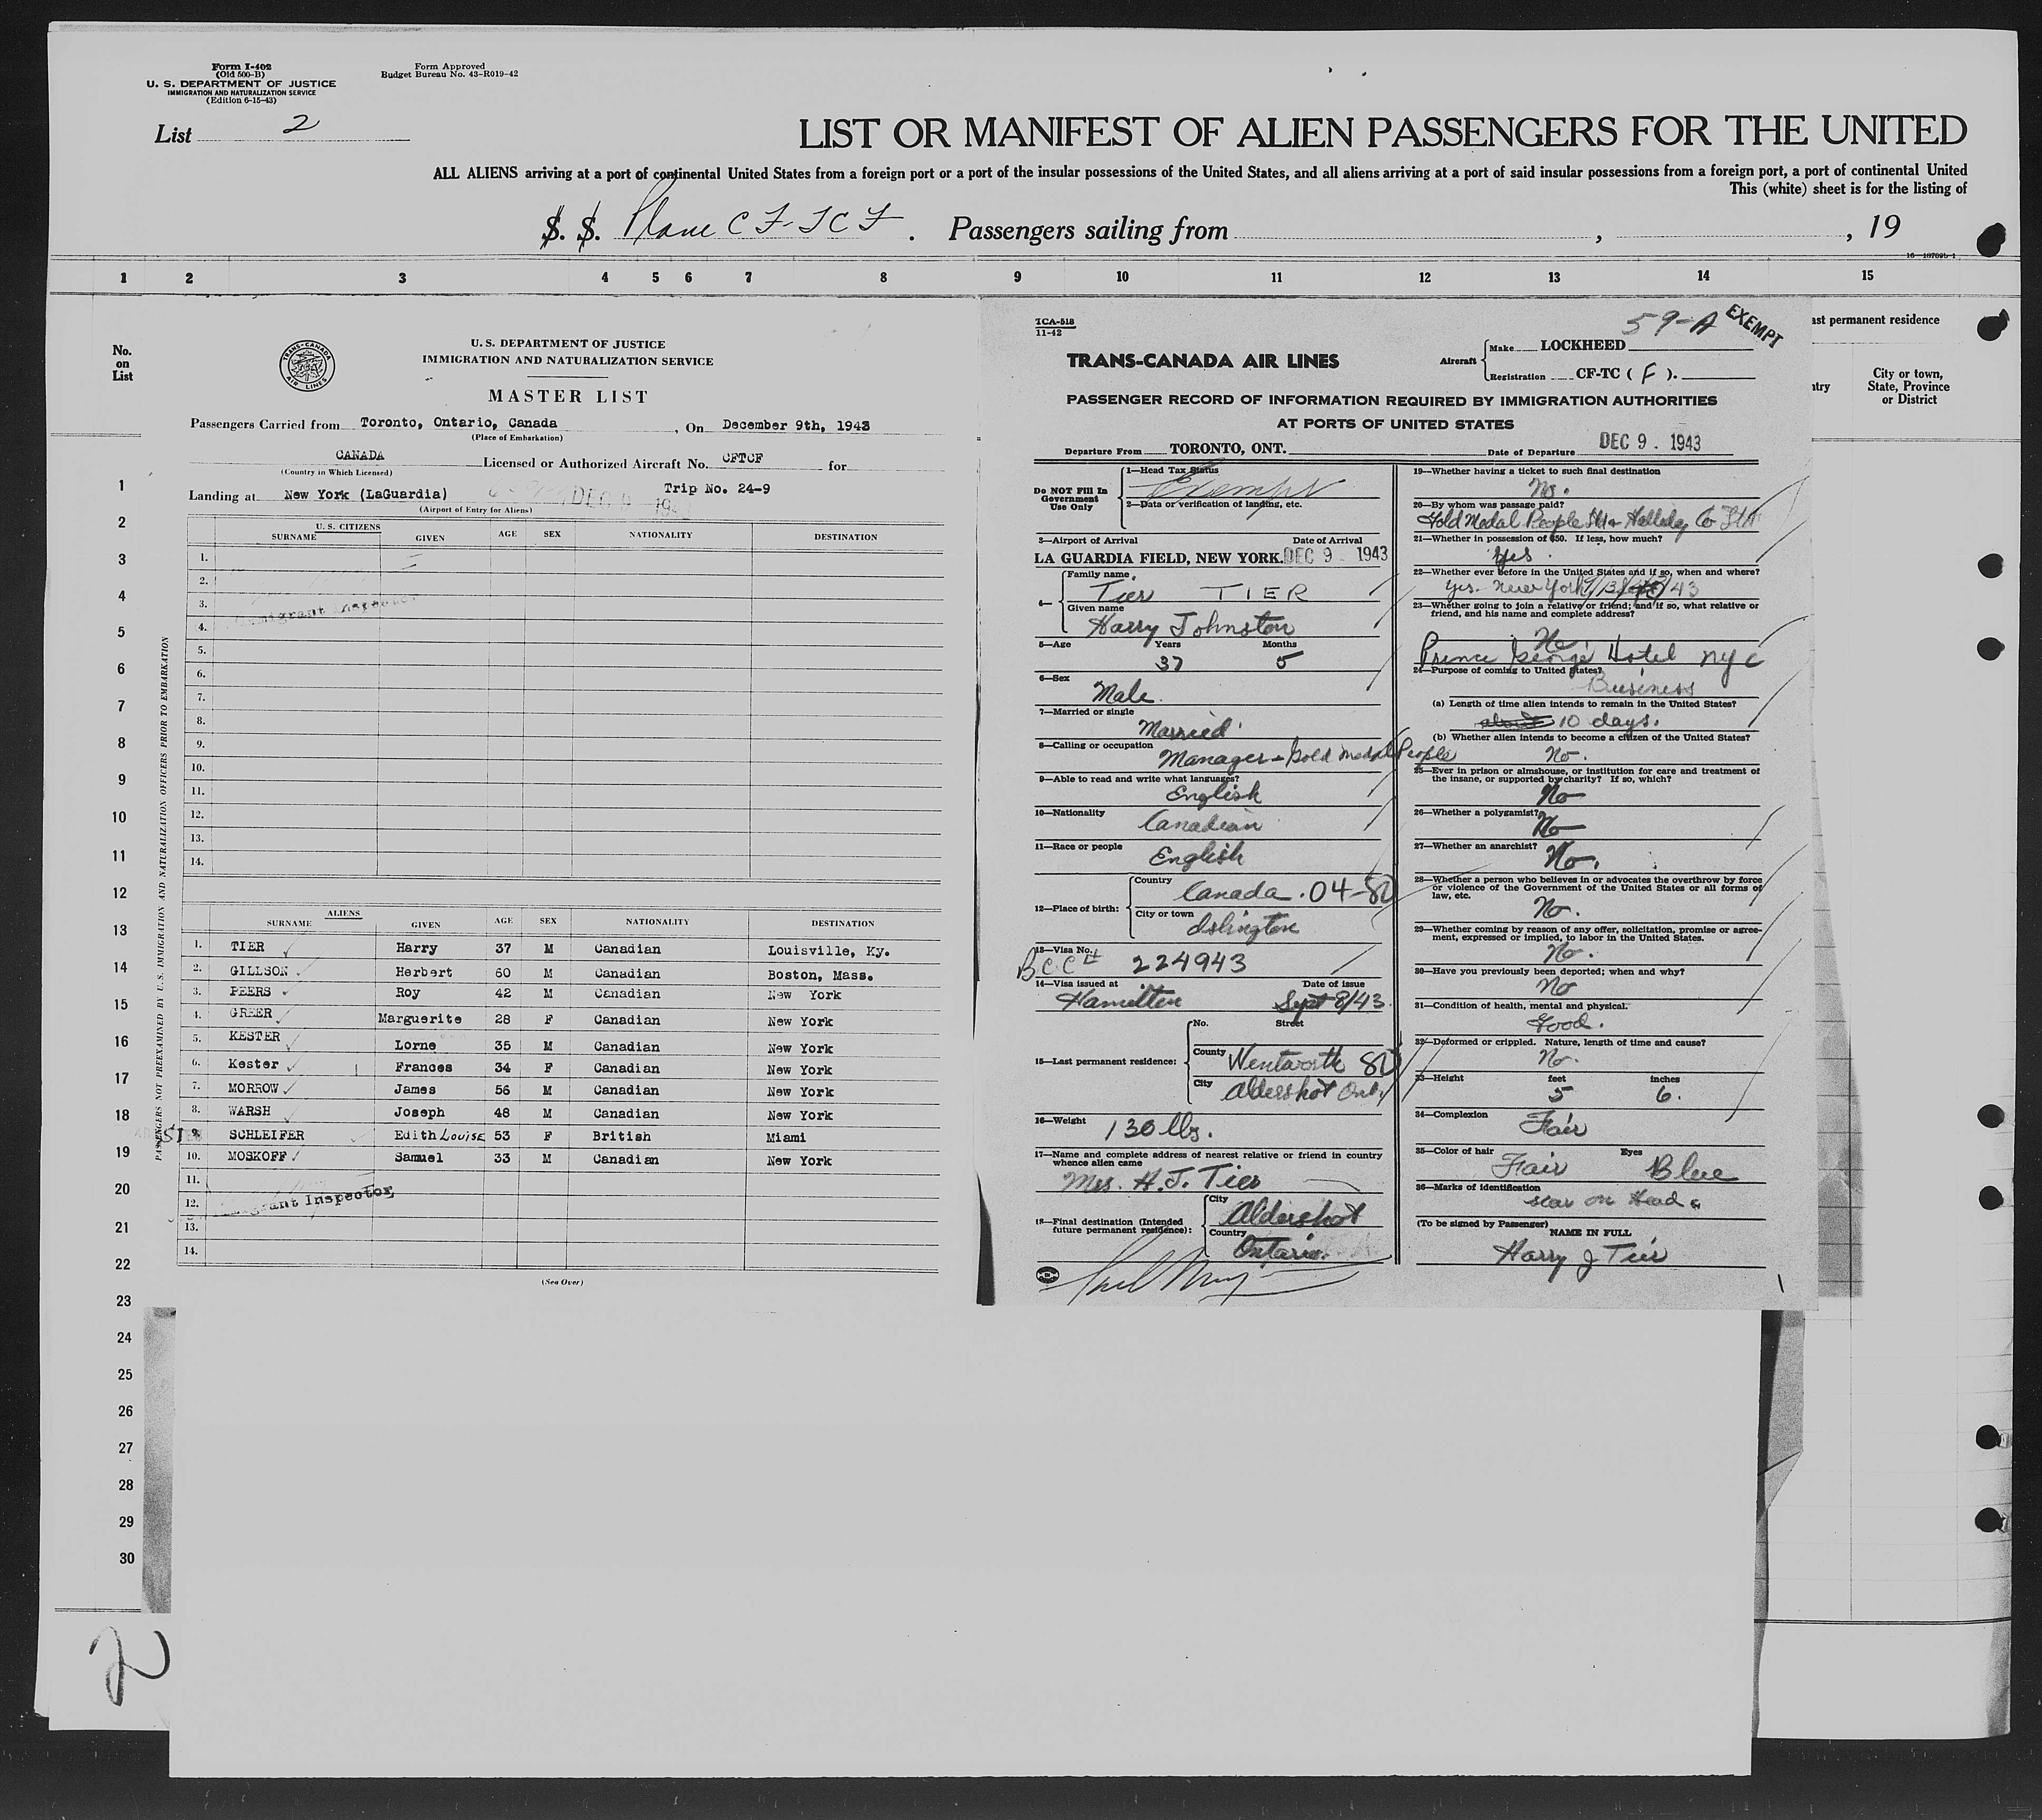 Form I-402
(Old 500-B)
U. S. DEPARTMENT OF JUSTICE
IMMIGRATION AND NATURALIZATION SERVICE
(Edition 6-15-43)
Form Approved
Budget Bureau No. 43-R019-42
List 2
LIST OR MANIFEST OF ALIEN PASSENGERS FOR THE UNITED
ALL ALIENS arriving at a port of continental United States from a foreign port or a port of the insular possessions of the United States, and all aliens arriving at a port of said insular possessions from a foreign port, a port of continental United
This (white) sheet is for the listing of
S. S. Plane CF-TCF. Passengers sailing from , , 19
1 2 3 4 5 6 7 8 9 10 11 12 13 14 15
No.
on
List
1
2
3
4
5
6
7
8
9
10
11
12
13
14
15
16
17
18
19
20
21
22
23
24
25
26
27
28
29
30
2
PASSENGERS NOT PREEXAMINED BY U. S. IMMIGRATION AND NATURALIZATION OFFICERS PRIOR TO EMBARKATION
TRANS-CANADA AIR LINES
U. S. DEPARTMENT OF JUSTICE
IMMIGRATION AND NATURALIZATION SERVICE
MASTER LIST
Passengers Carried from Toronto, Ontario, Canada, On December 9th, 1943
(Place of Embarkation)
CANADA Licensed or Authorized Aircraft No. CFTCF for
(Country in Which Licensed)
Landing at New York (LaGuardia) Trip No. 24-9
(Airport of Entry for Aliens)
U. S. CITIZENS
SURNAME GIVEN AGE SEX NATIONALITY DESTINATION
1.
2.
3.
4.
5.
6.
7.
8.
9.
10.
11.
12.
13.
14.
ALIENS
SURNAME GIVEN AGE SEX NATIONALITY DESTINATION
1. TIER Harry 37 M Canadian Louisville, Ky.
2. GILLSON Herbert 60 M Canadian Boston, Mass.
3. PEERS Roy 42 M Canadian New York
4. GREER Marguerite 28 F Canadian New York
5. KESTER Lorne 35 M Canadian New York
6. Kester Frances 34 F Canadian New York
7. MORROW James 56 M Canadian New York
8. WARSH Joseph 48 M Canadian New York
9. SCHLEIFER Edith Louise 53 F British Miami
10. MOSKOFF Samuel 33 M Canadian New York
11.
12. Immigrant Inspector
13.
14.
(See Over)
TCA-518
11-42
59-A EXEMPT
TRANS-CANADA AIR LINES
Aircraft Make LOCKHEED
Registration CF-TC ( F ).
PASSENGER RECORD OF INFORMATION REQUIRED BY IMMIGRATION AUTHORITIES
AT PORTS OF UNITED STATES
Departure From TORONTO, ONT. Date of Departure DEC 9 - 1943
Do NOT Fill In
Government
Use Only
1—Head Tax Status
Exempt
2—Data or verification of landing, etc.
3—Airport of Arrival Date of Arrival
LA GUARDIA FIELD, NEW YORK. DEC 9 1943
4— Family name
Tier TIER
Given name
Harry Johnston
5—Age Years Months
37 5
6—Sex
Male
7—Married or single
Married
8—Calling or occupation
Manager - Gold Medal People
9—Able to read and write what languages?
English
10—Nationality
Canadian
11—Race or people
English
12—Place of birth: Country
Canada . 04-80
City or town
Islington
13—Visa No.
BCC# 224943
14—Visa issued at Date of issue
Hamilton Sept 8/43
15—Last permanent residence:
No. Street
County Wentworth 80
City Aldershot Ont.
16—Weight
130 lbs.
17—Name and complete address of nearest relative or friend in country
whence alien came
Mrs. H. J. Tier
18—Final destination (Intended
future permanent residence):
City
Aldershot
Country
Ontario.
19—Whether having a ticket to such final destination
No.
20—By whom was passage paid?
Gold Medal People Co
21—Whether in possession of $50. If less, how much?
Yes
22—Whether ever before in the United States and if so, when and where?
Yes. New York 43
23—Whether going to join a relative or friend; and if so, what relative or
friend, and his name and complete address?
No
Prince George Hotel NYC
24—Purpose of coming to United States?
Business
(a) Length of time alien intends to remain in the United States?
about 10 days.
(b) Whether alien intends to become a citizen of the United States?
No.
25—Ever in prison or almshouse, or institution for care and treatment of
the insane, or supported by charity? If so, which?
No
26—Whether a polygamist?
No
27—Whether an anarchist?
No.
28—Whether a person who believes in or advocates the overthrow by force
or violence of the Government of the United States or all forms of
law, etc.
No.
29—Whether coming by reason of any offer, solicitation, promise or agree-
ment, expressed or implied, to labor in the United States.
No.
30—Have you previously been deported; when and why?
No
31—Condition of health, mental and physical.
Good.
32—Deformed or crippled. Nature, length of time and cause?
No.
33—Height feet inches
5 6.
34—Complexion
Fair
35—Color of hair Eyes
Fair Blue
36—Marks of identification
scar on Head
(To be signed by Passenger)
NAME IN FULL
Harry J Tier
ast permanent residence
ntry
City or town,
State, Province
or District